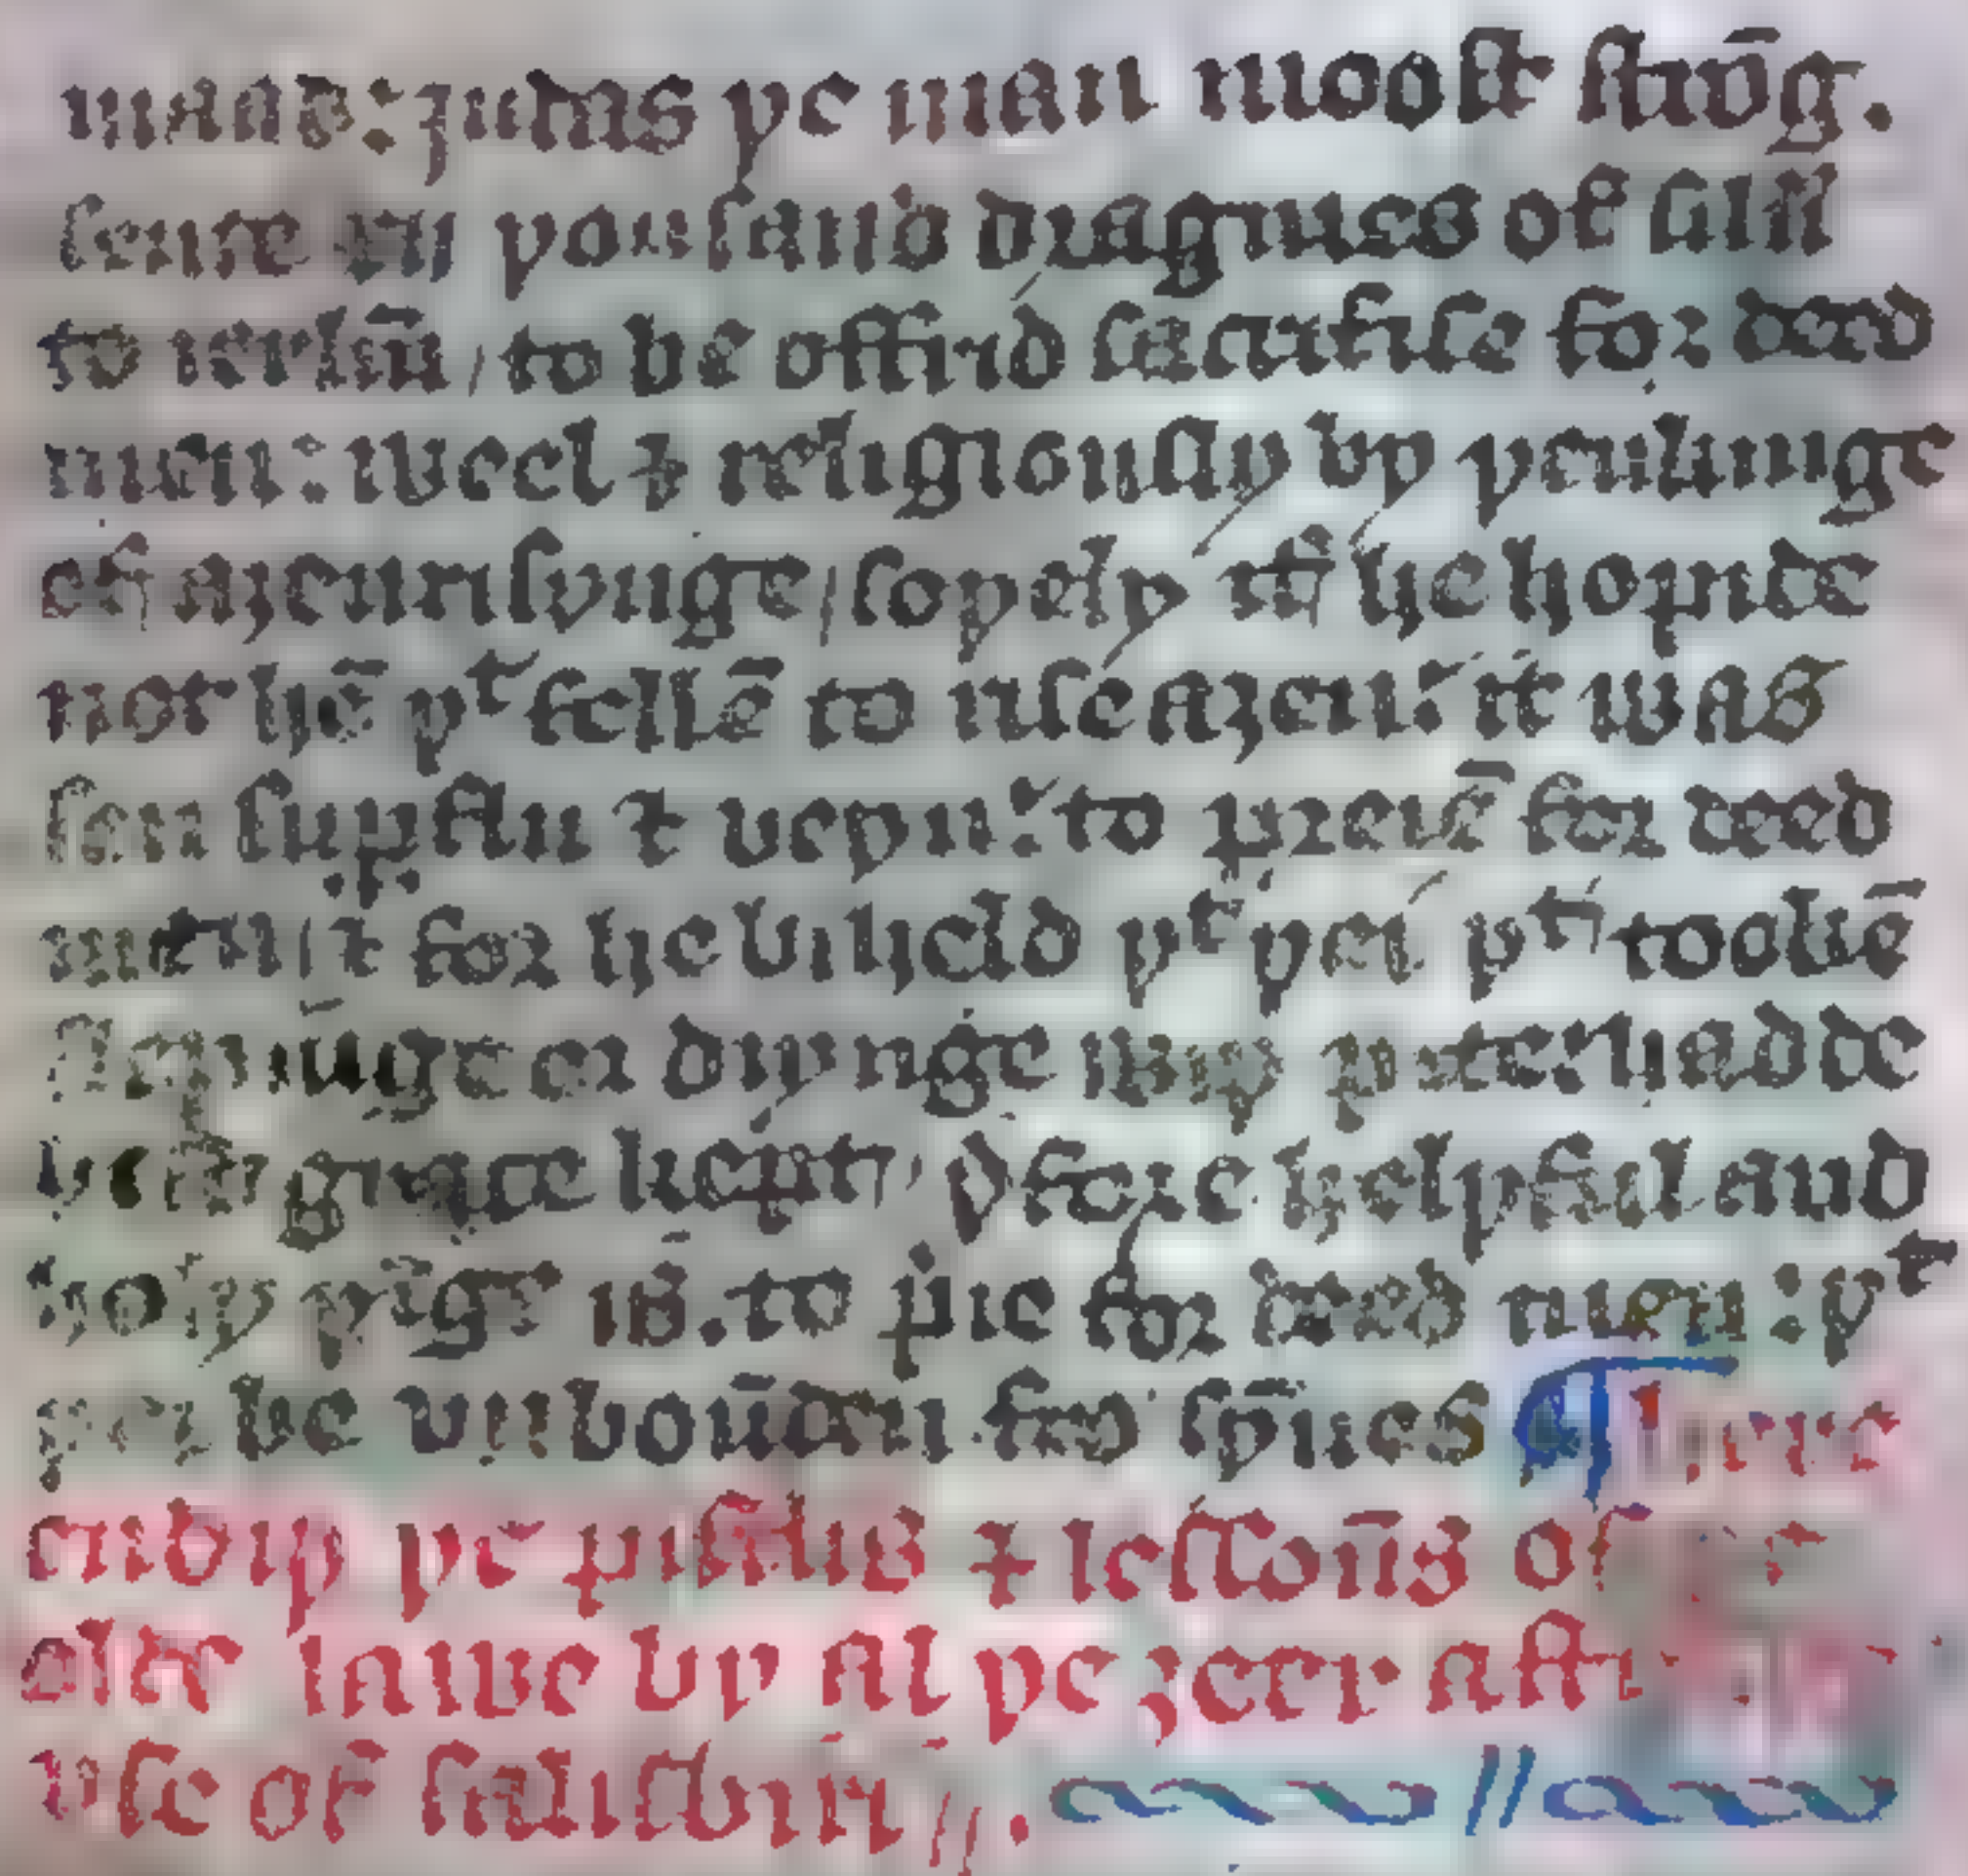 maad: judas þe man moost strōg.
sente xij þousand dragmes of silū
to ierlm̄ / to be offrid sacrifise for deed
men: weel ⁊ religiously by þenkinge
of aȝenrisynge / soþely if he hopide
not hē þᵗ fellē to riseaȝen: it was
sen supflu ⁊ veyn: to preiē for deed
men / ⁊ for he biheld þᵗ þei þᵗ tookē
slepinge or diynge wiþ pitee: hadde
best grace kept / þfore helpful and
holy þīg is. to p̄ie for deed men: þᵗ
þei be vnboūden fro synnes ¶ Here
endiþ þe pistlis ⁊ lessoūs of
olde lawe by al þe ȝeer aftir
vse of salisbiri //.